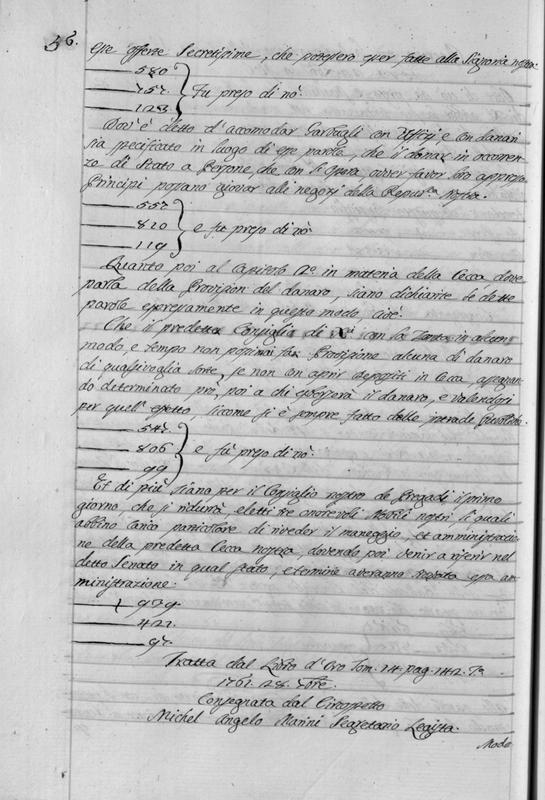 56.
esse offerte Secretissime, che potessero esser fatte alla Signoria nostra.
580
757
123
Fu preso di nò
Dov'è detto d'accomodar Garbugli con Uffizj, e con danari
sia specificato in luogo di esse parole, che il donar in occoren-
ze di Stato a Persone, che con l'opera, over favor loro appresso
Principi possano giovar alle negozj della Repub.ca Nostra.
557
820
119
e fù preso di nò
Quanto poi al Capitolo in materia della Cecca dove
parla della Provision del danaro, siano dichiarite le dette
parole espressamente in questo modo, cioè:
Che il predetto Consiglio di X.ci con la Zonta in alcun
modo, e tempo non possino far Provisione alcuna di danaro
di qualsivoglia sorte, se non con aprir depositi in Cecca, assegnan-
do determinato prò, poi a chi esporrà il danaro, e valendosi
per quell'effetto, siccome si è sempre fatto delle intrade
547
806
99
e fù preso di nò.
Et di più siano per il Consiglio nostro de Pregadi il primo
giorno, che si ridurà, eletti tre onorevoli Nobili nostri, li quali
abbino carico particolare di riveder il maneggio, et amministrazio-
ne della predetta Cecca nostra, dovendo poi venir a riferir nel
detto Senato in qual stato, e termine averanno trovata essa am-
ministrazione.
979
422
97
Tratta dal Libro d'Oro Tom. 14 pag. 142. T.a
1761. 28.
Consegnata dal Circospetto
Michel Angelo Marini Segretario Legista.
Modo